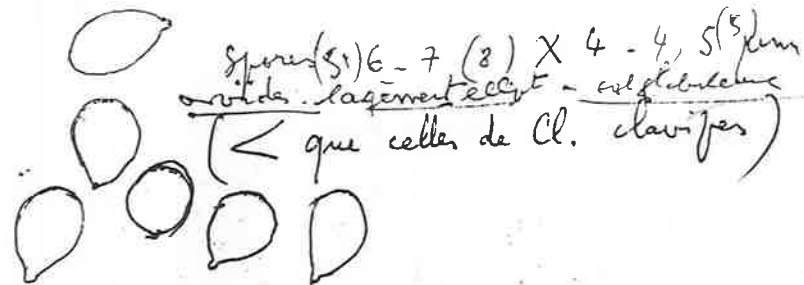 Spores (5,) 6 - 7 (8) X 4 - 4,5 (5) µm
ovoïdes - largement ellipt - subglobuleuse
(< que celles de Cl. clavipes)